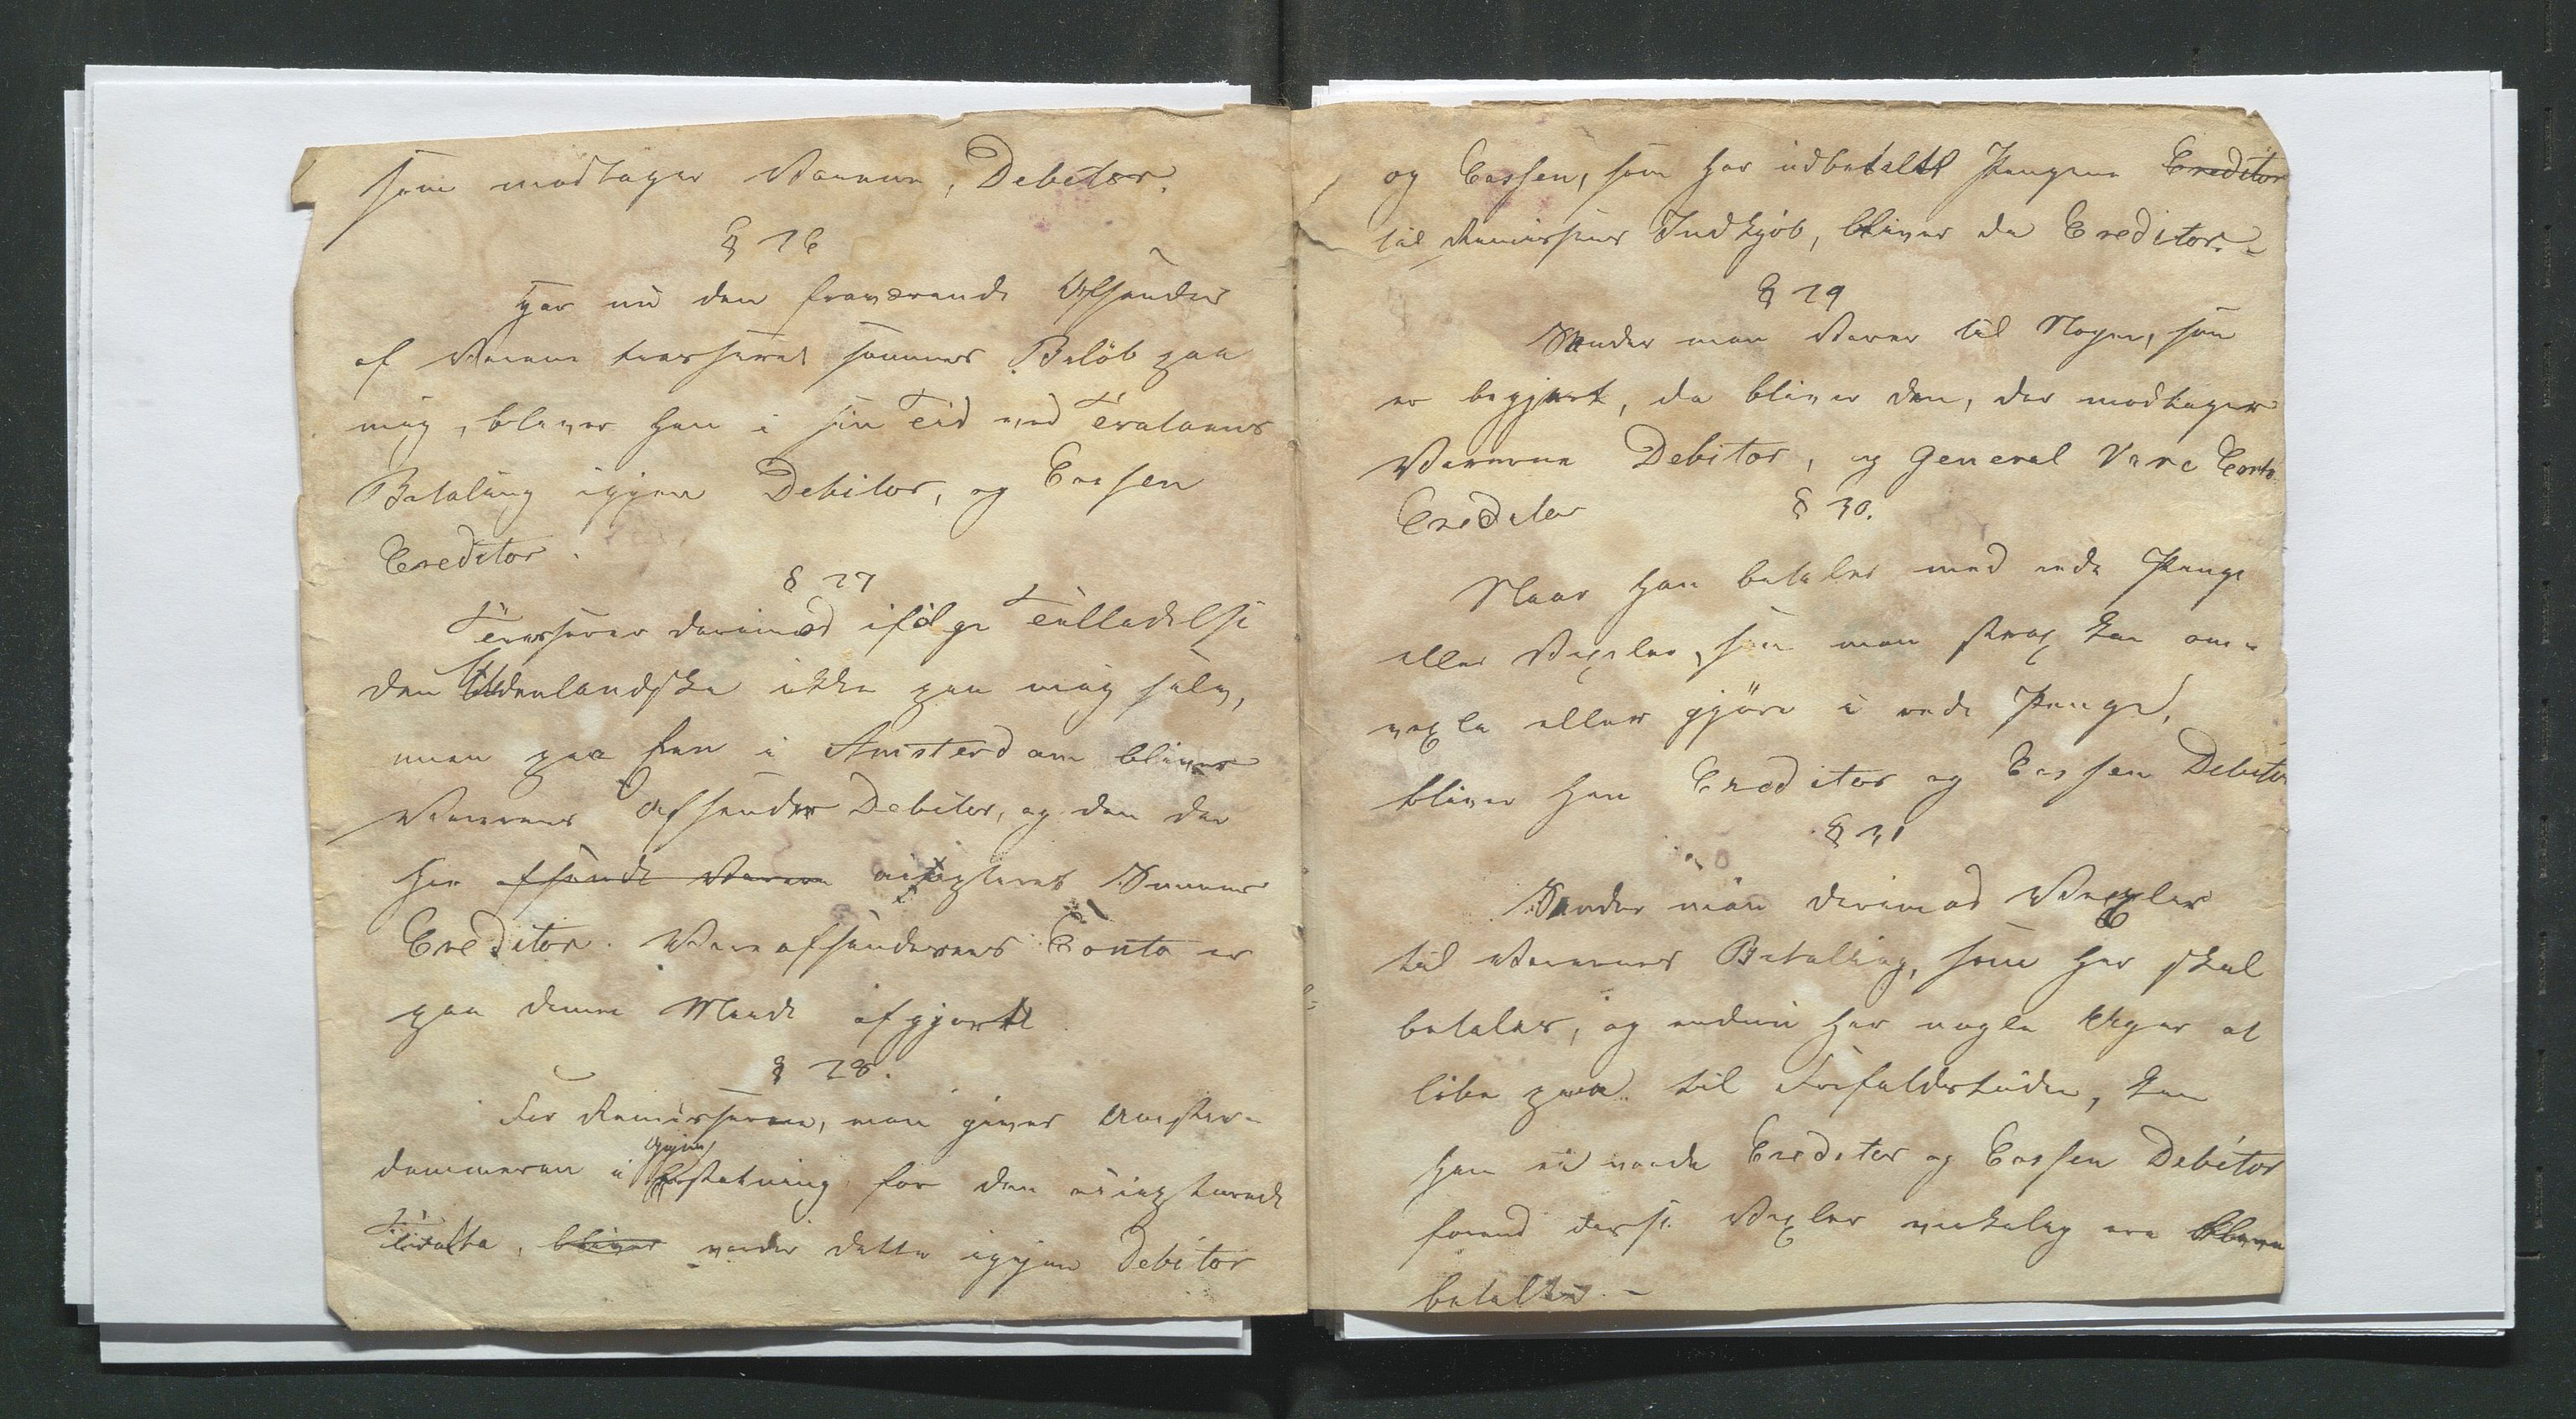 som modtager Varerne, Debitor.
§ 26
Har nu den fraværende Afsender
af Varerne trasseret sammes Beløb paa
mig, bliver han i sin Tid ved Tratatens
Betaling igjen Debitor, og Cassen
Creditor.
§ 27
Trasserer derimod ifølge Tilladelse
den Udenlandske ikke paa mig selv,
men paa han i Amsterdam bliver
Varernes Afsender Debitor, og den der
har afsendt Varerne accepteret Summen
Creditor. Vareafsenderens Conto er
paa denne Maade afgjort
§ 28.
For Remisserne, man giver Amster-
dammeren i Gjen
Erstatning for den accepterede
Tratta, bliver vorder dette igjen Debitor
og Cassen, som har udbetalt Pengene Creditor
til Remissens Indkjøb, bliver da Creditor.-
§ 29
Sender man Varer til Nogen, som
er begjert, da bliver den, der modtager
Varerne Debitor, og General Vare Conto
Creditor
§ 30.
Naar han betaler med rede Penge
eller Vexler, som man strax kan om-
vexle eller gjöre i rede Penge,
bliver han Creditor og Cassen Debitor
§ 31
Sender man derimod Vexler
til Varernes Betaling, som her skal
betales, og endnu har nogle Uger at
löbe paa til Forfaldstiden, kan
han ei vorde Creditor og Cassen Debitor
forend disse Vexler virkelig ere blevne
betalte.-